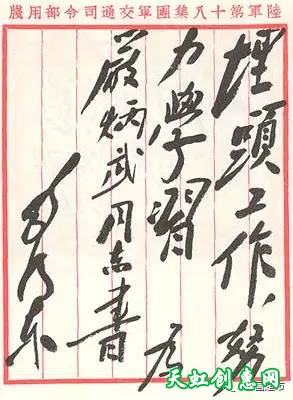 陸軍第十八集團軍交通司令部用牋
埋頭工作，努
力學習　應
嚴炳武同志書
毛泽东
天虹创意网